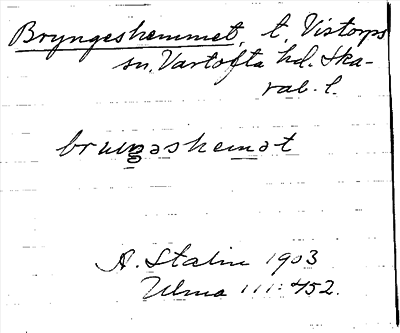 Bryngeshemmet, t. Vistorps
sn, Vartofta hd. Ska-
rab. l.
bruŋəshemət
A. Stalin 1903
Ulma 111:452.